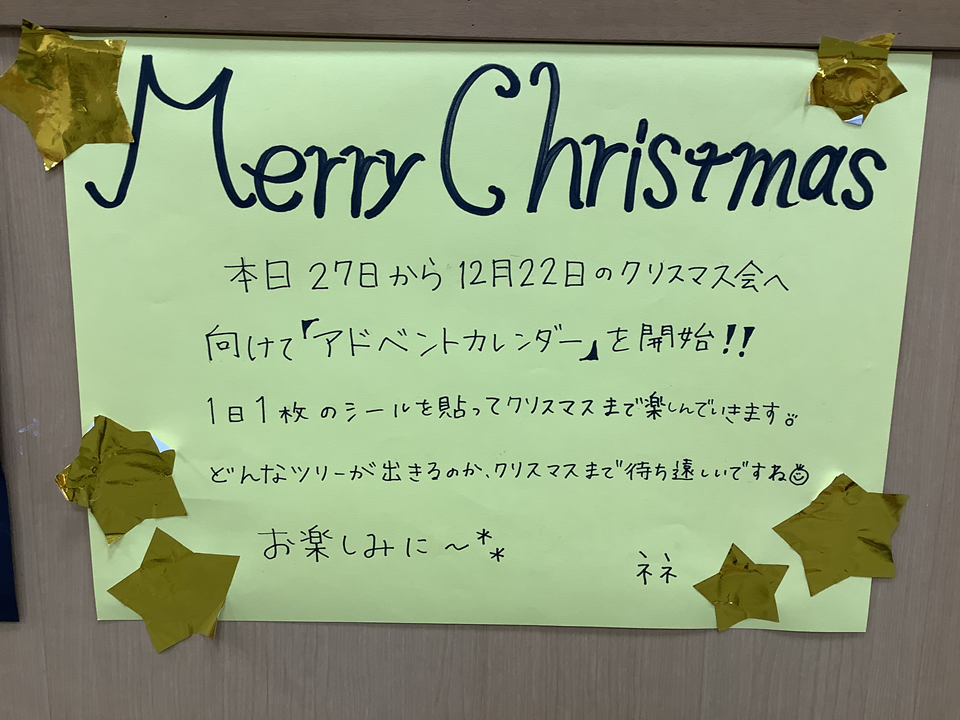 Merry Christmas
本日 27日から 12月22日のクリスマス会へ
向けて「アドベントカレンダー」を開始!!
1日1枚のシールを貼ってクリスマスまで楽しんでいきます。
どんなツリーが出きるのか、クリスマスまで待ち遠しいですね☺
お楽しみに～**
ネネ